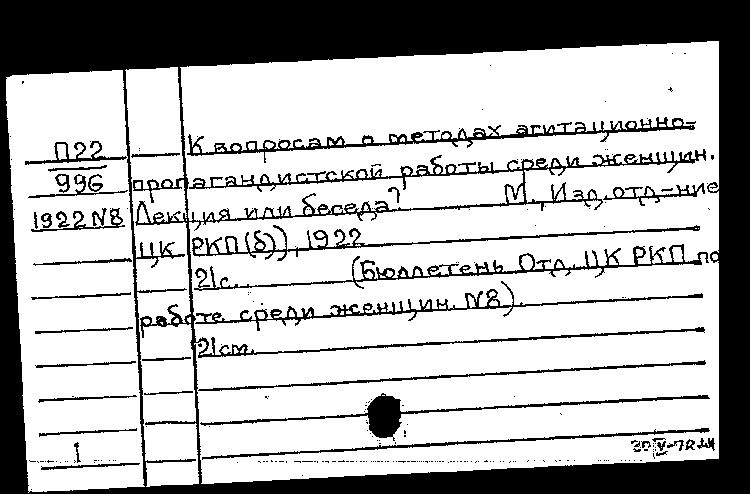 П22
996
1922 N8
К вопросам о методах агитационно-
пропагандистской работы среди женщин.
Лекция или беседа? М., Изд. отд-ние
ЦК РКП(б)), 1922
21 с. (Бюллетень Отд. ЦК РКП по
работе среди женщин. N8).
21 см.
1